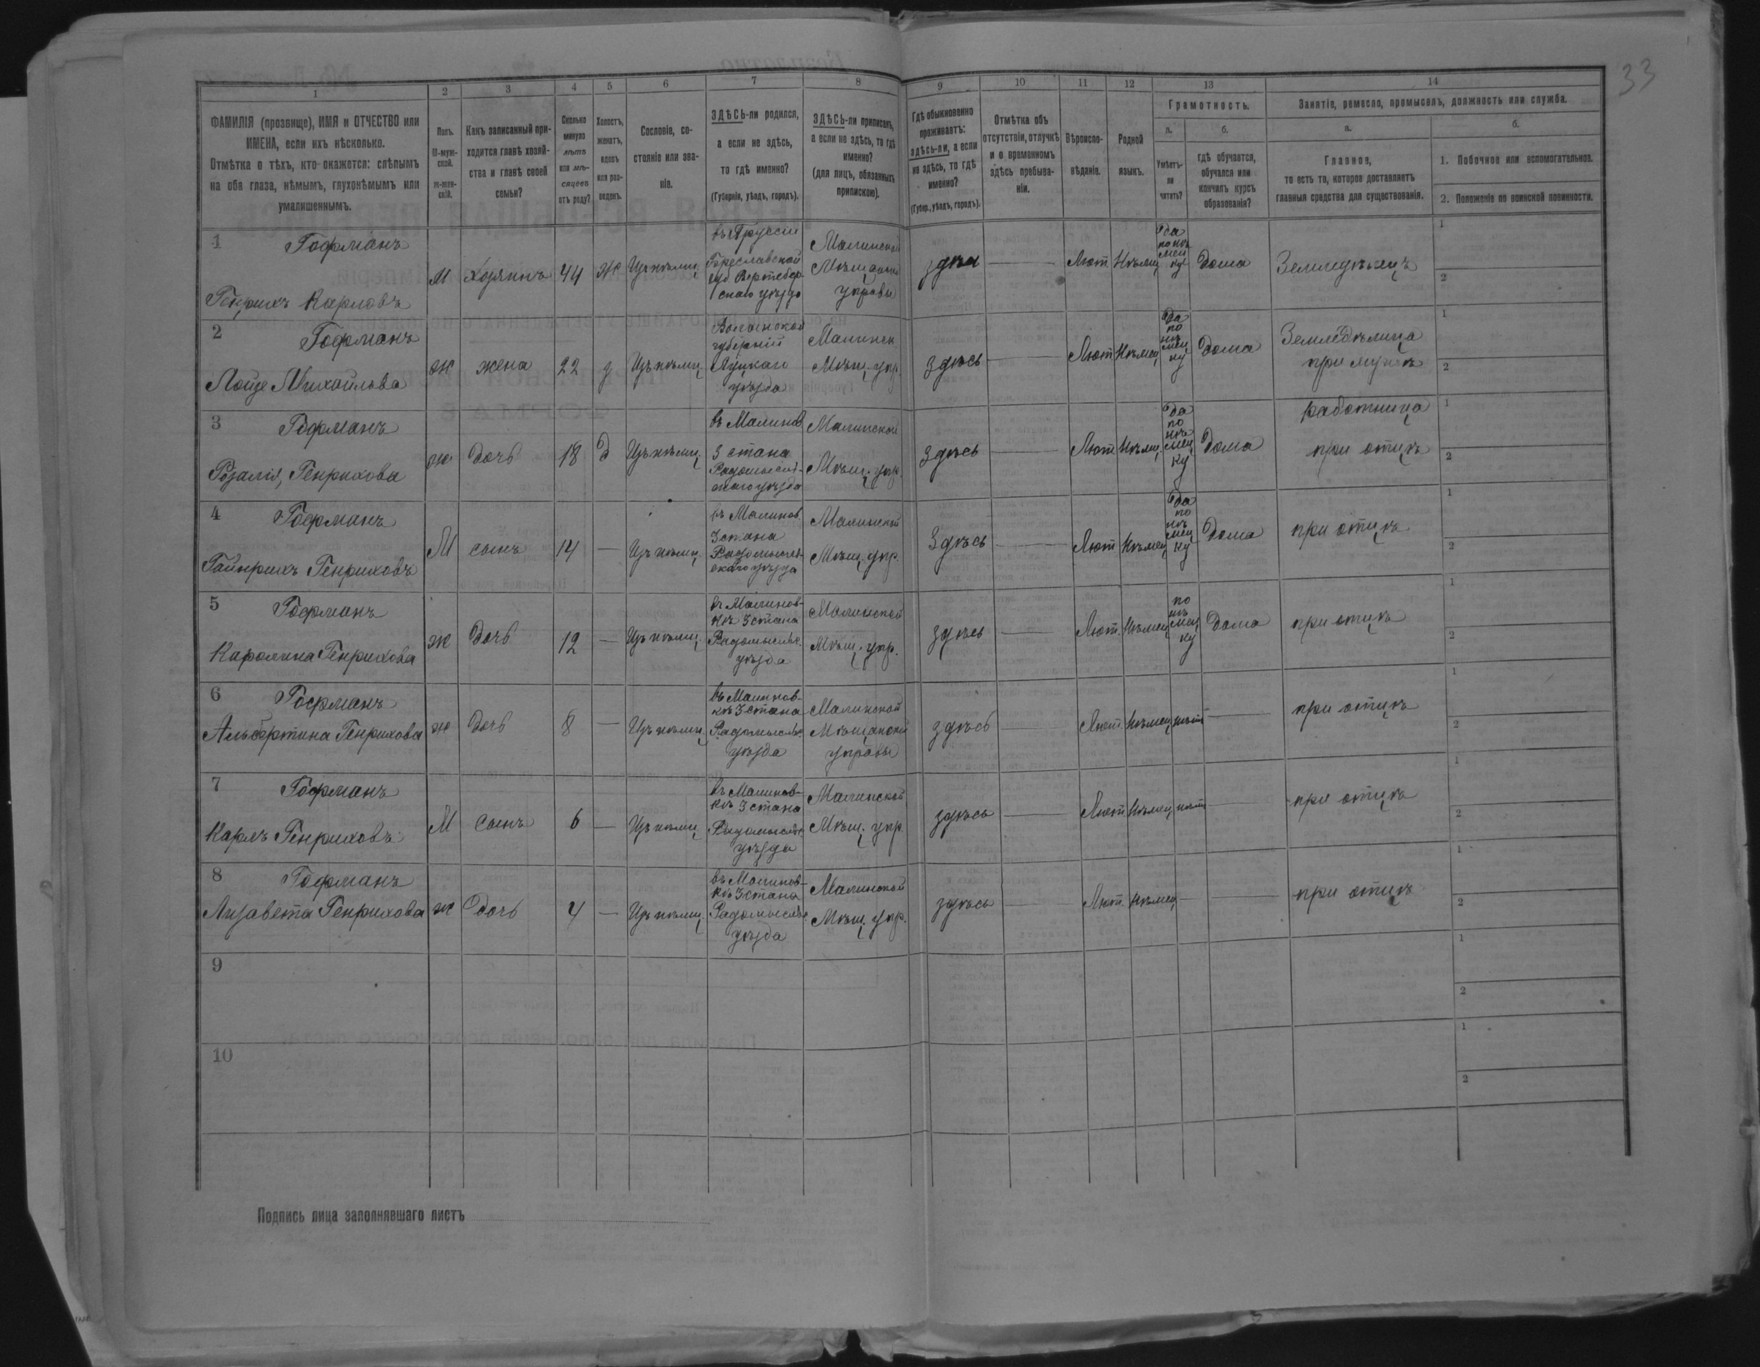 33
1 2 3 4 5 6 7 8 9 10 11 12 13 14
ФАМИЛІЯ (прозвище), ИМЯ и ОТЧЕСТВО или
ИМЕНА, если ихъ нѣсколько.
Отмѣтка о тѣхъ, кто окажется: слѣпымъ
на оба глаза, нѣмымъ, глухонѣмымъ или
умалишеннымъ.
Полъ.
М-муж-
ской.
Ж-жен-
скій.
Какъ записанный при-
ходится главѣ хозяй-
ства и главѣ своей
семьи?
Сколько
минуло
лѣтъ
или мѣ-
сяцевъ
отъ роду?
Холостъ,
женатъ,
вдовъ
или раз-
веденъ.
Сословіе, со-
стояніе или зва-
ніе.
ЗДѢСЬ-ли родился,
а если не здѣсь,
то гдѣ именно?
(Губернія, уѣздъ, городъ).
ЗДѢСЬ-ли приписанъ,
а если не здѣсь, то гдѣ
именно?
(для лицъ, обязанныхъ
припискою).
Гдѣ обыкновенно
проживаетъ:
здѣсь-ли, а если
не здѣсь, то гдѣ
именно?
(Губер., уѣздъ, городъ).
Отмѣтка объ
отсутствіи, отлучкѣ
и о временномъ
здѣсь пребыва-
ніи.
Вѣроиспо-
вѣданіе.
Родной
языкъ.
Грамотность.
а.
Умѣетъ-
ли
читать?
б.
гдѣ обучается,
обучался или
кончилъ курсъ
образованія?
Занятіе, ремесло, промыселъ, должность или служба.
а.
Главное,
то есть то, которое доставляетъ
главныя средства для существованія.
б.
1. Побочное или вспомогательное.
2. Положеніе по воинской повинности.
1 Гофманъ
Генрихъ Карловъ
М Хозяинъ 44 Ж
въ Пруссіи
уѣзда
Малинской
Мѣщанской
управы
здѣсь Лют Нѣмец Дома Земледѣлецъ
1
2
2 Гофманъ
Михайлова
ж жена 22
Волынской
губерніи
Луцкаго
уѣзда
Малинск
Мѣщ. упр.
здѣсь Лют Нѣмец
да
по
нѣ
мец
ку
Дома
Земледѣлица
при мужѣ
1
2
3 Гофманъ
Розалія Генрихова
ж дочь 18 д
въ Малинов
3 стана
Радомысль-
скаго уѣзда
Малинской
Мѣщ. упр.
здѣсь Лют Нѣмец
да
по
нѣ
мец
ку
Дома
работница
при отцѣ
1
2
4 Гофманъ
Гайнрихъ Генриховъ
М сынъ 14
въ Малинов
3 стана
Радомысль-
скаго уѣзда
Малинской
Мѣщ. упр.
Здѣсь Лют Нѣмец
да
по
нѣ
мец
ку
Дома при отцѣ
1
2
5 Гофманъ
Каролина Генрихова
ж Дочь 12
въ Малинов-
кѣ 3 стана
Радомысльс.
уѣзда
Малинской
Мѣщ. упр.
здѣсь Лют. Нѣмец
по
нѣ
мец
ку
Дома при отцѣ
1
2
6 Гофманъ
Альбертина Генрихова
ж Дочь 8
въ Малинов-
кѣ 3 стана
Радомысльс
уѣзда
Малинской
Мѣщанской
управы
здѣсь Лют Нѣмец нѣт при отцѣ
1
2
7 Гофманъ
Карлъ Генриховъ
М Сынъ 6
въ Малинов-
кѣ 3 стана
Радомысльс
уѣзда
Малинской
Мѣщ. упр.
здѣсь Лют Нѣмец нѣт при отцѣ
1
2
8 Гофманъ
Лизавета Генрихова
ж Дочь 4
въ Малинов-
кѣ 3 стана
Радомысльс
уѣзда
Малинской
Мѣщ. упр.
здѣсь Лют. Нѣмец при отцѣ
1
2
9
1
2
10
1
2
Подпись лица заполнявшаго листъ